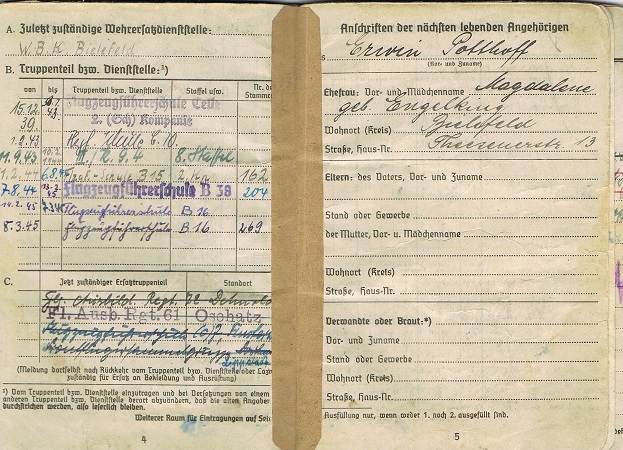 A. Zuletzt zuständige Wehrersatzdienststelle:
W.B.K Bielefeld
B. Truppenteil bzw. Dienststelle:¹)
von bis Truppenteil bzw. Dienststelle Staffel usw. Nr. der Stammr
15.12.39 Flugzeugführerschule Celle
2. (Sch) Kompanie
1.2.43
11.9.43 8. Staffel
1.2. 6.8.44 Schule B 15 2. 162
7.8.44 Flugzeugführerschule B 38 204
14.2.45 Flugzeugführerschule B 16
8.3.45 Flugzeugführerschule B 16 269
C. Jetzt zuständiger Ersatztruppenteil Standort
Flg. Ausbild. Regt.
Fl. Ausb. Rgt. 61 - Oschatz
(Meldung dortselbst nach Rückkehr vom Truppenteil bzw. Dienststelle oder Laz
zuständig für Ersatz an Bekleidung und Ausrüstung)
¹) Vom Truppenteil bzw. Dienststelle einzutragen und bei Versetzungen von einem
anderen Truppenteil bzw. Dienststelle derart abzuändern, daß die alten Angaben
durchstrichen werden, also leserlich bleiben.
Weiterer Raum für Eintragungen auf Seit
4
Anschriften der nächsten lebenden Angehörigen
Erwin Potthoff
(Vor- und Zuname)
Ehefrau: Vor- und Mädchenname Magdalene
geb. Engelking
Wohnort (Kreis) Bielefeld
Straße, Haus-Nr. 13
Eltern: des Vaters, Vor- und Zuname
Stand oder Gewerbe
der Mutter, Vor- u. Mädchenname
Wohnort (Kreis)
Straße, Haus-Nr.
Verwandte oder Braut:*)
Vor- und Zuname
Stand oder Gewerbe
Wohnort (Kreis)
Straße, Haus-Nr.
Ausfüllung nur, wenn weder 1. noch 2. ausgefüllt sind.
5